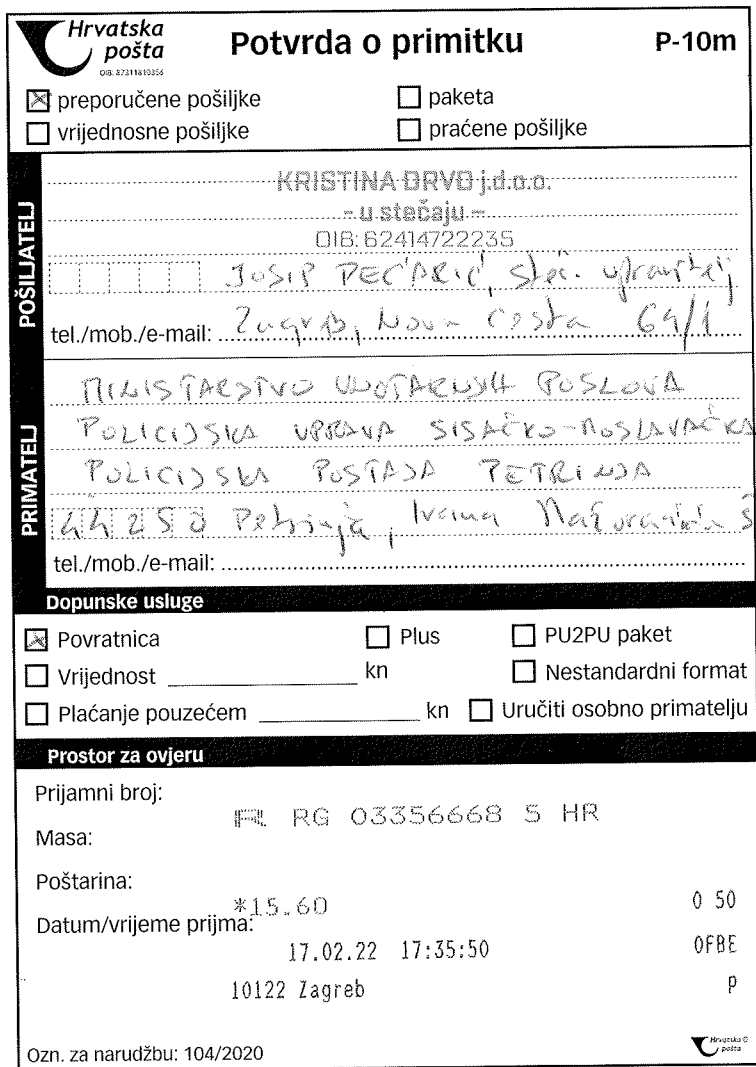 Hrvatska pošta
OIB: 87311810356
Potvrda o primitku
P-10m
preporučene pošiljke
paketa
vrijednosne pošiljke
praćene pošiljke
POŠILJATELJ
KRISTINA DRVO j.d.o.o.
- u stečaju -
OIB: 62414722235
JOSIP PEĆARIĆ, steč. upravitelj
tel./mob./e-mail: Zagreb, Nova cesta 64/1
PRIMATELJ
MINISTARSTVO UNUTARNJIH POSLOVA
POLICIJSKA UPRAVA SISAČKO-MOSLAVAČKA
POLICIJSKA POSTAJA PETRINJA
44250 Petrinja, Ivana Mažuranića
tel./mob./e-mail:
Dopunske usluge
Povratnica
Plus
PU2PU paket
Vrijednost kn
Nestandardni format
Plaćanje pouzećem kn
Uručiti osobno primatelju
Prostor za ovjeru
Prijamni broj:
R RG 03356668 5 HR
Masa:
Poštarina:
*15.60
0 50
Datum/vrijeme prijma:
17.02.22 17:35:50
OFBE
10122 Zagreb
p
Ozn. za narudžbu: 104/2020
Hrvatska pošta